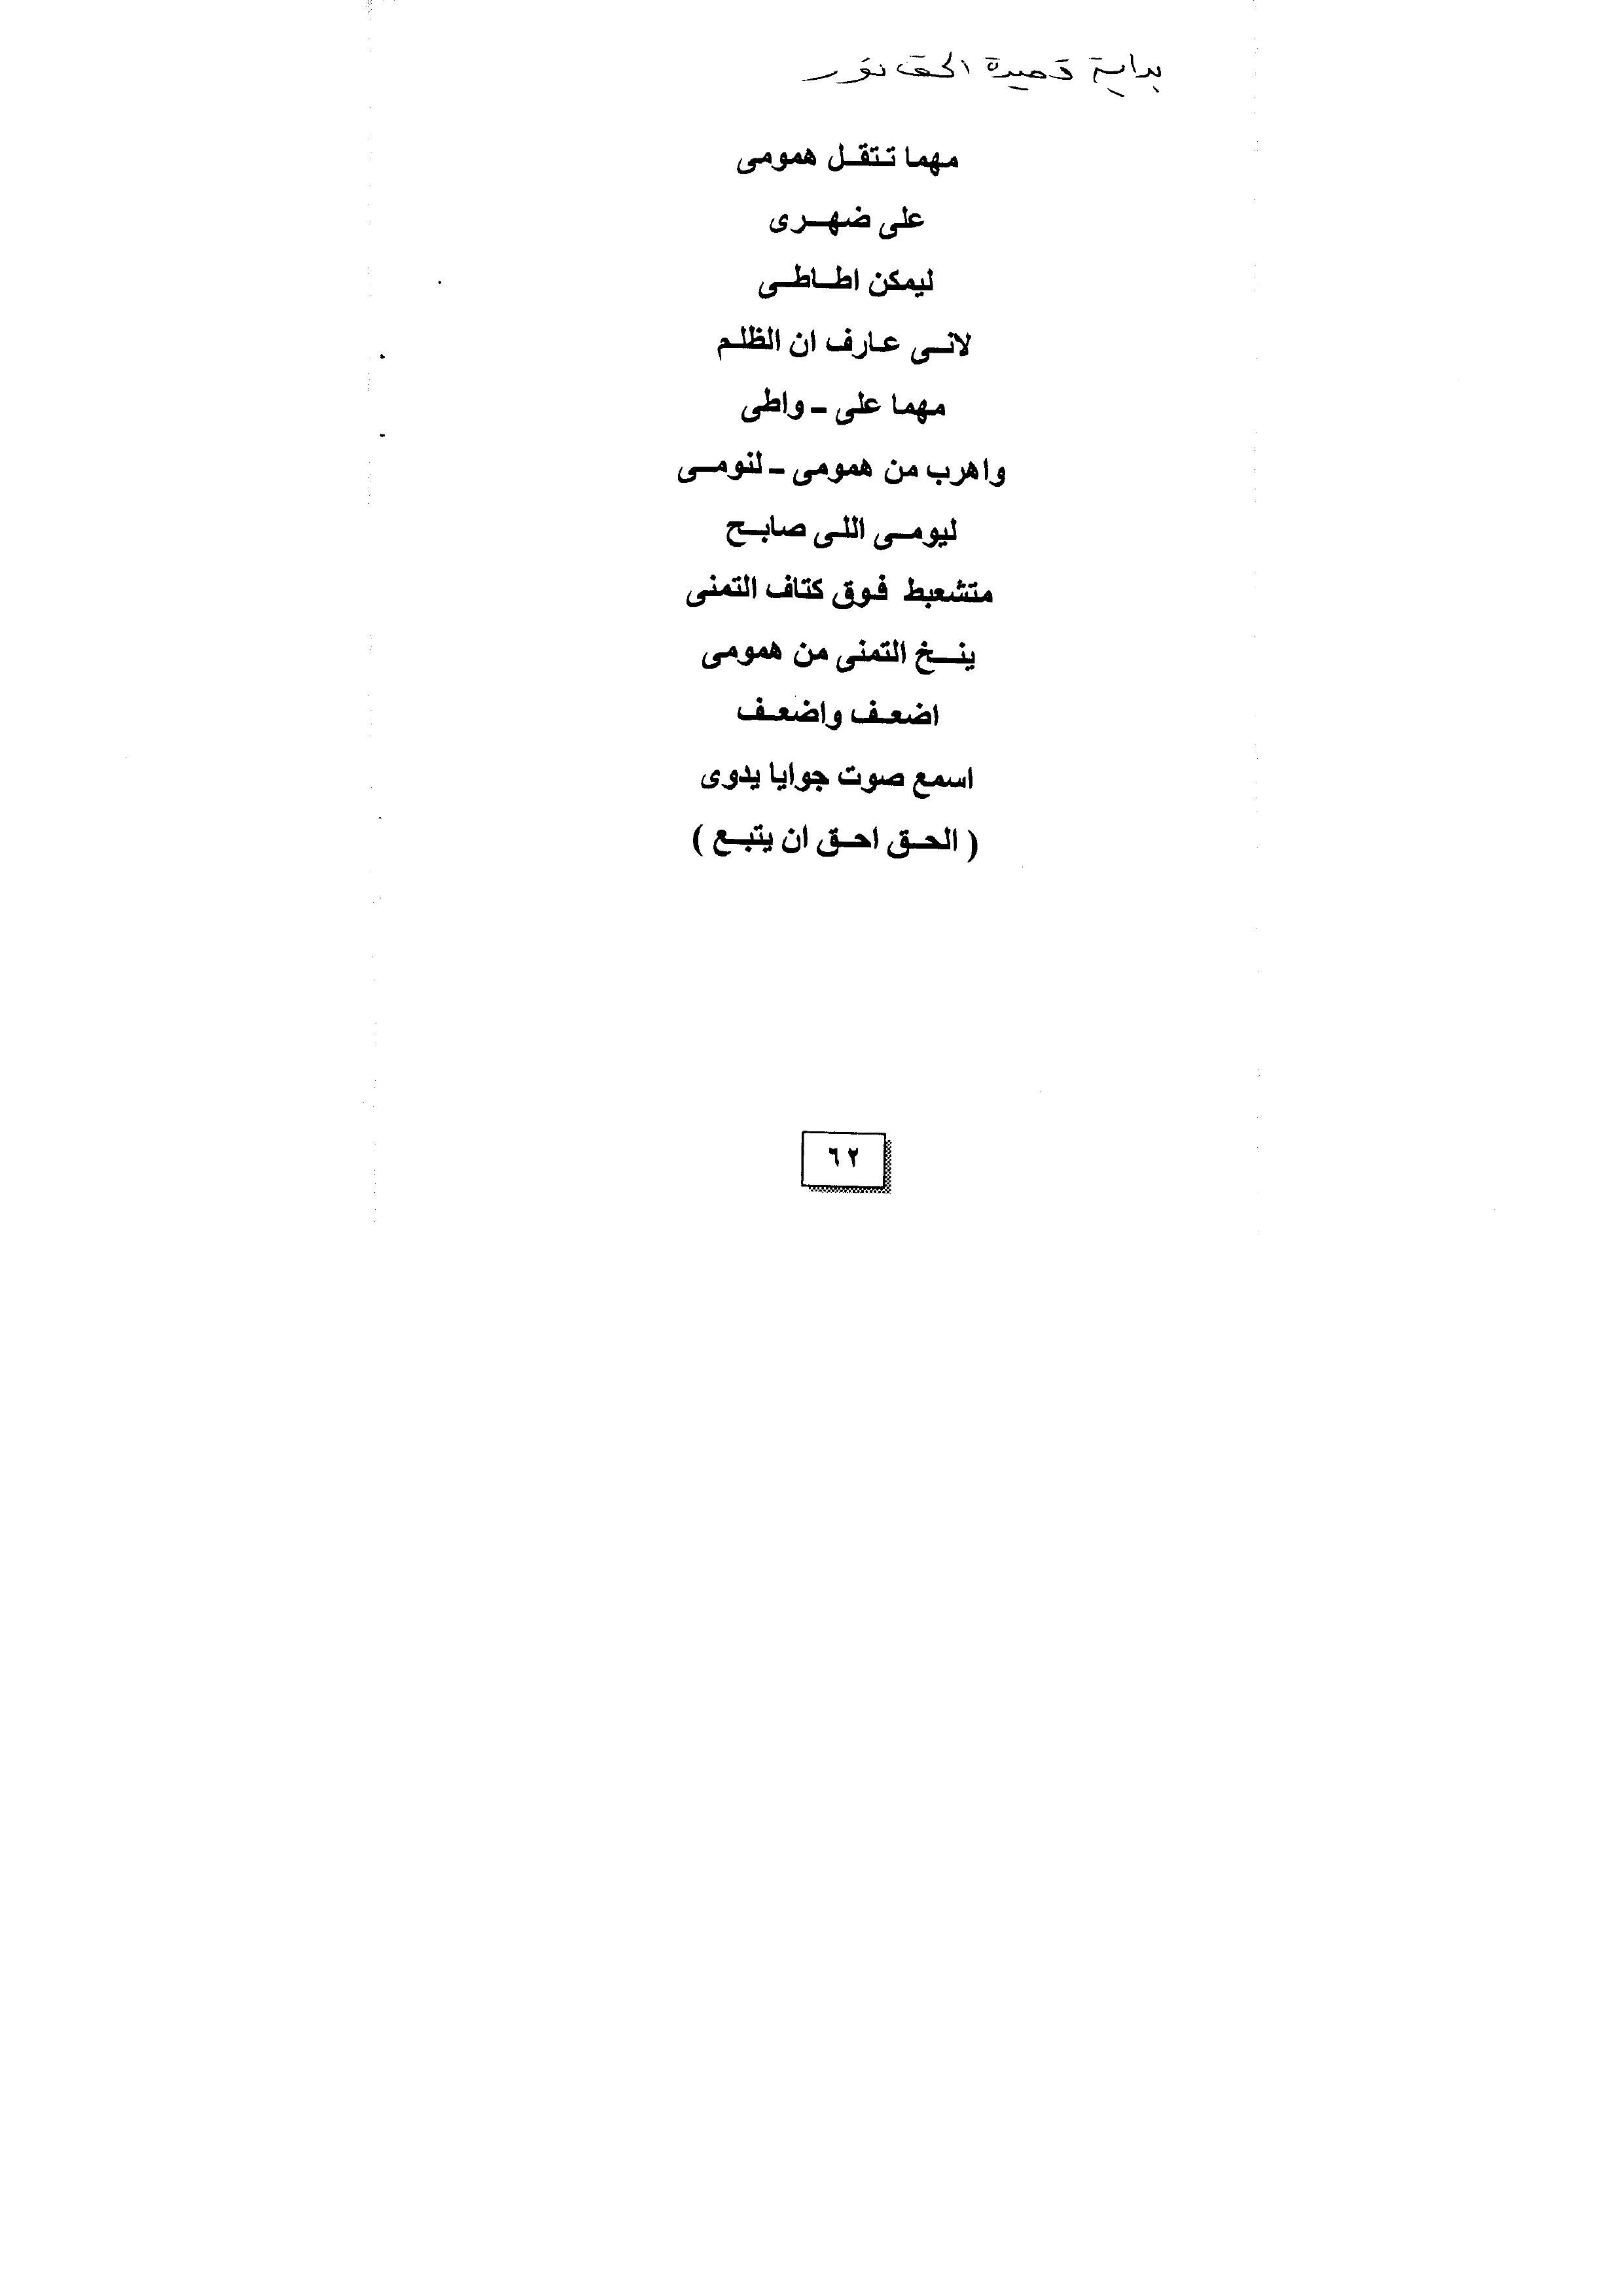 بداية قصيدة الحق نور
مهما تتقل همومى
على ضهرى
ليمكن اطاطى
لانى عارف ان الظلم
مهما على - واطى
واهرب من همومى - لنومى
ليومى اللى صابح
متشعبط فوق كتاف التمنى
ينخ التمنى من همومى
اضعف واضعف
اسمع صوت جوايا يدوى
( الحق احق ان يتبع )
٦٢